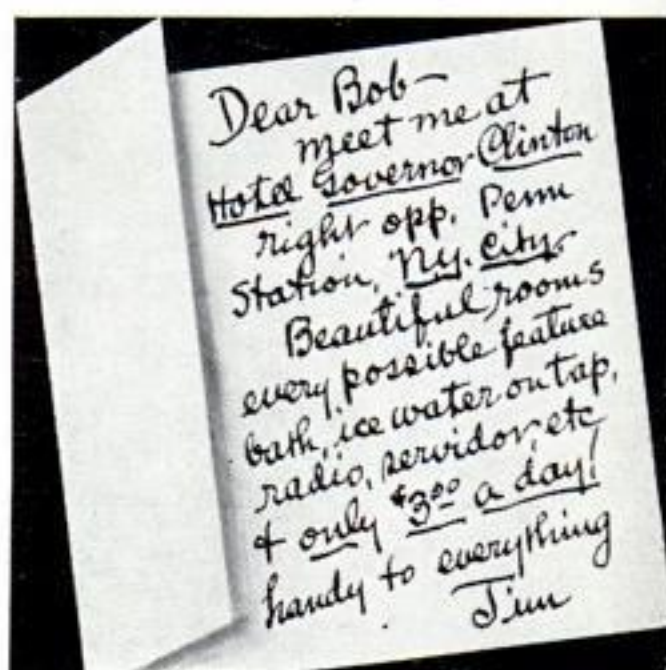 Dear Bob—
meet me at
Hotel Governor Clinton
right opp. Penn
Station, Ny. City.
Beautiful rooms
every possible feature
bath, ice water on tap,
radio, servidor, etc
+ only $3.00 a day!
handy to everything
Jim